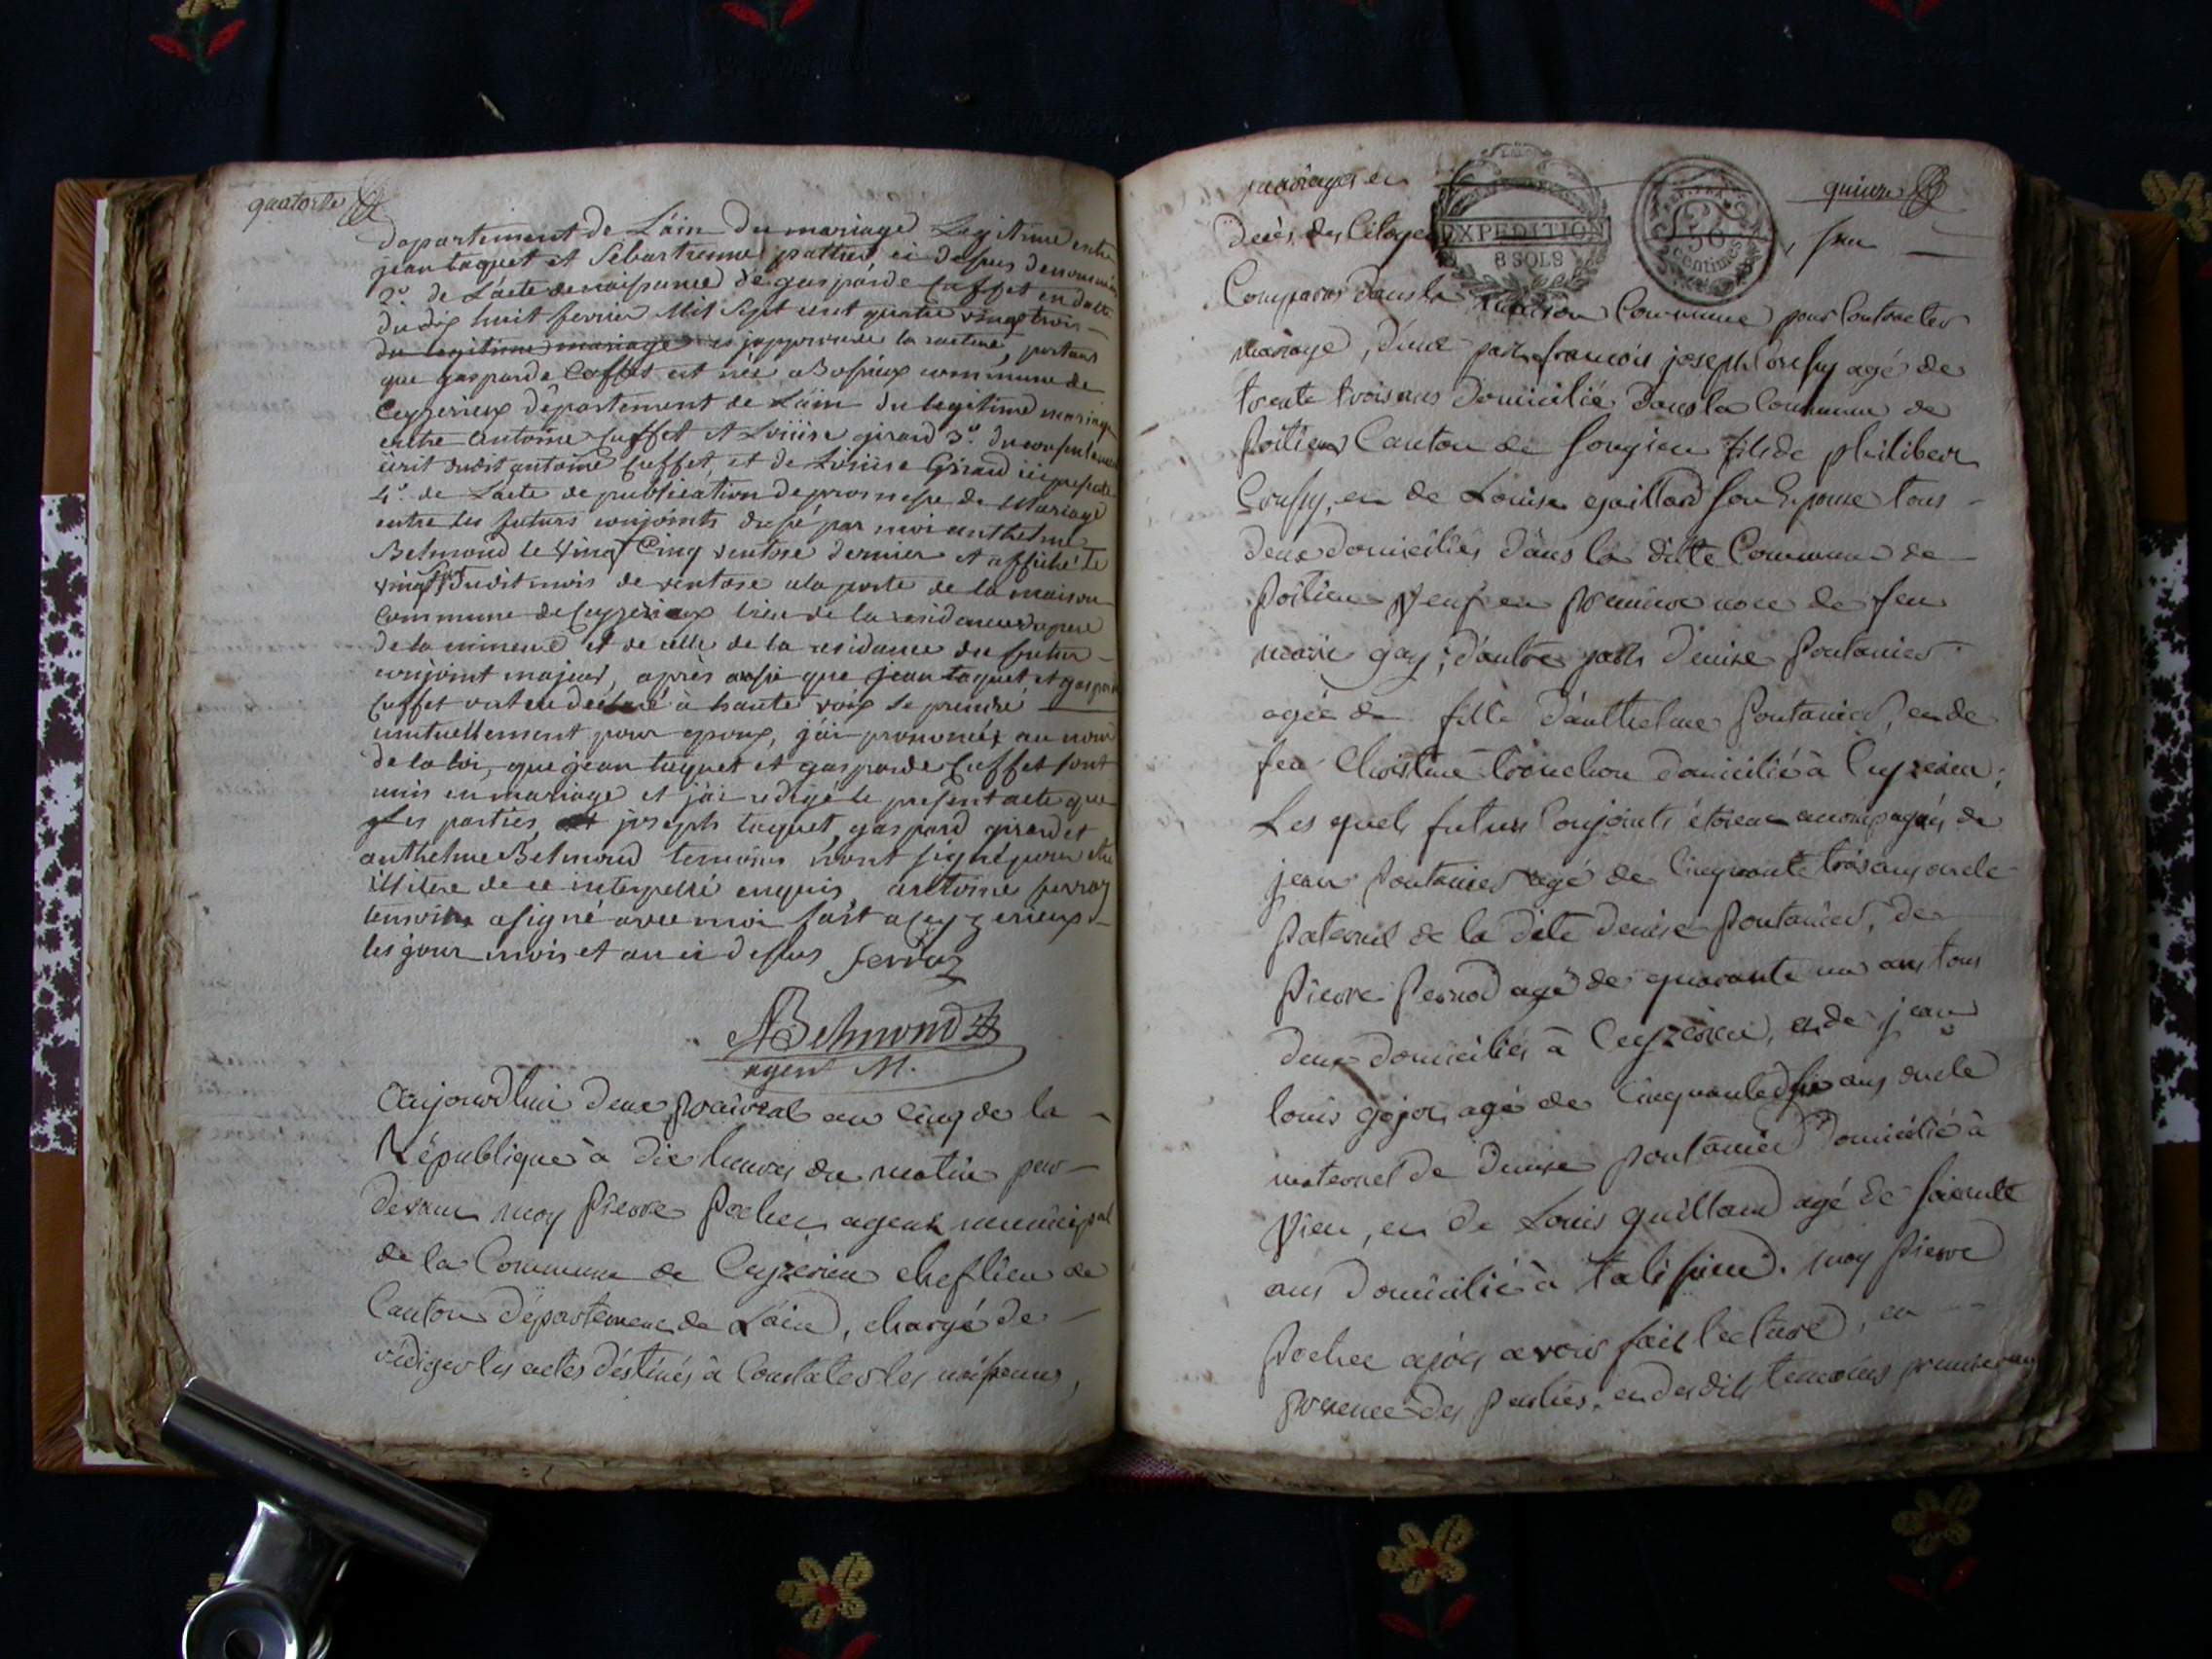 quatorze
departement de L'ain du mariage Legitime entre
jean taquet et Sebastienne pattier ci dessus denommés
2.º de L'acte de naissance de gasparde Cuffet en datte
du dix huit fevrier Mil Sept cent quatre vingt trois
du legitime mariage portant
que gasparde Cuffet est née a commune de
Ceyzerieux département de L'ain du legitime mariage
entre antoine Cuffet et Louise girard 3.º du consentement
dudit antoine Cuffet, et de Louise Girard ici presents
4.º de L'acte de publication de promesse de Mariage
entre les futurs conjoints dressé par moi anthelme
Belmond le Vingt Cinq ventose dernier et affiché le
vingt sept dudit mois de ventose a la porte de la maison
commune de Ceyzerieux lieu de la residance
de la mineure et de celle de la residance du futur
conjoint majeur, après aussi que jean taquet et gasparde
Cuffet ont eu declaré à haute voix se prendre
mutuellement pour epoux, j'ai prononcé au nom
de la loi, que jean taquet et gasparde Cuffet sont
unis en mariage et j'ai redigé le present acte que
les parties, joseph taquet, gaspard girard et
anthelme Belmond temoins n'ont signé pour etre
illitere de ce interpellé enquis, antoine ferroz
temoin a signé avec moi fait a Ceyzerieux
les jour mois et an ci dessus ferroz
ABelmond
agent M.
Aujourd'hui deux prairial an cinq de la
République à dix heures du matin par
devant moy Pierre Pochet agent municipal
de la Commune de Ceyzerieu chef lieu de
Canton département de L'ain, chargé de
rédiger les actes destinés à Constater les naissances,
mariages et quinze
décès des Citoyens
EXPEDITION
8 SOLS 9
50
centimes
Comparus dans la maison Commune pour Contracter
mariage, d'une part françois joseph agé de
trente trois ans domicilié dans la Commune de
Poitieu Canton de Songieu fils de philibert
et de Louise gaillard son Epouse tous
deux domiciliés dans la ditte Commune de
Poitieu veuf en premiere noce de feu
marie gay; d'autre part denise Pontanier
agée de fille d'anthelme Pontanier, et de
feu Christine tronchon domicilié à Ceyzerieu;
Les quels futurs Conjoints étoient accompagnés de
jean Pontanier agé de Cinquante trois ans oncle
Paternel de la dite denise Pontanier, de
Pierre Pernod agé de quarante un ans tous
deux domiciliés à Ceyzerieu, et de jean
louis gojoz agé de Cinquante six ans oncle
maternel de denise pontanier domicilié à
Vieu, et de Louis guilland agé de soixante
ans domicilié à talissieu. moy Pierre
Pochet après avoir fait lecture, en
presence des Parties, et des dits temoins premierement